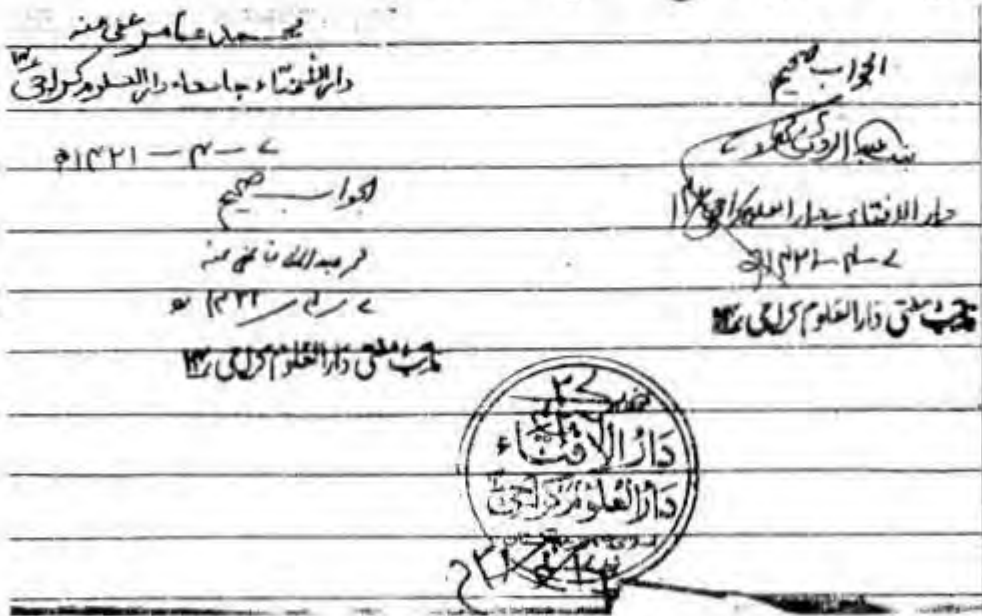 محمد عامر عفی عنہ
دارالافتاء جامعہ دارالعلوم کراچی ۱۴
۷-۴-۱۴۲۱ھ
الجواب صحیح
بندہ عبدالرؤف سکھروی
دارالافتاء دارالعلوم کراچی ۱۴
۷-۴-۱۴۲۱ھ
نائب مفتی دارالعلوم کراچی ۱۴
الجواب صحیح
عفی عنہ
۷/۴/۱۴۲۱ھ
نائب مفتی دارالعلوم کراچی ۱۴
دَارُ الْاِفْتَاء
دَارُالعُلوم كراچی